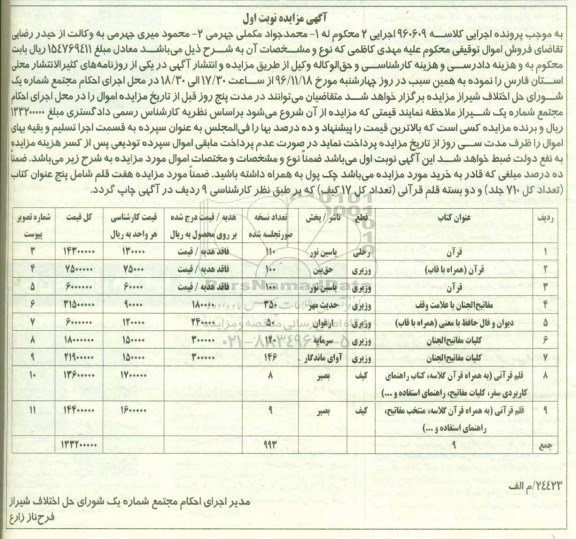 آگهی مزایده نوبت اول
به موجب پرونده اجرایی کلاسه ۹۶۰۶۰۹ اجرایی ۲ محکوم له ۱- محمدجواد مکملی جهرمی ۲- محمود میری جهرمی به وکالت از حیدر رضایی
تقاضای فروش اموال توقیفی محکوم علیه مهدی کاظمی که نوع و مشخصات آن به شرح ذیل می‌باشد معادل مبلغ ۱۵۴۷۶۹۴۱۱ ریال بابت
محکوم به و هزینه دادرسی و هزینه کارشناسی و حق‌الوکاله وکیل از طریق مزایده و انتشار آگهی در یکی از روزنامه‌های کثیرالانتشار محلی
استان فارس را نموده به همین سبب در روز چهارشنبه مورخ ۹۶/۱۱/۱۸ از ساعت ۱۷/۳۰ الی ۱۸/۳۰ در محل اجرای احکام مجتمع شماره یک
شورای حل اختلاف شیراز مزایده برگزار خواهد شد متقاضیان می‌توانند در مدت پنج روز قبل از تاریخ مزایده اموال را در محل اجرای احکام
مجتمع شماره یک شیراز ملاحظه نمایند قیمتی که مزایده از آن شروع می‌شود براساس نظریه کارشناس رسمی دادگستری مبلغ ۱۳۳۲۰۰۰۰۰
ریال و برنده مزایده کسی است که بالاترین قیمت را پیشنهاد و ده درصد بها را فی‌المجلس به عنوان سپرده به قسمت اجرا تسلیم و بقیه بهای
اموال را ظرف مدت سی روز از تاریخ مزایده پرداخت نماید در صورت عدم پرداخت مابقی اموال سپرده تودیعی پس از کسر هزینه مزایده
به نفع دولت ضبط خواهد شد این آگهی نوبت اول می‌باشد ضمناً نوع و مشخصات و مختصات اموال مورد مزایده به شرح زیر می‌باشد. ضمناً
ده درصد مبلغی که قادر به خرید مورد مزایده می‌باشد چک پول به همراه داشته باشید. ضمناً مورد مزایده هفت قلم شامل پنج عنوان کتاب
(تعداد کل ۷۱۰ جلد) و دو بسته قلم قرآنی (تعداد کل ۱۷ کیف) که بر طبق نظر کارشناسی ۹ ردیف در آگهی چاپ گردد.
ردیف عنوان کتاب قطع ناشر / پخش تعداد نسخه صورتجلسه شده هدیه / قیمت درج شده بر روی محصول به ریال قیمت کارشناسی هر واحد به ریال کل قیمت شماره تصویر پیوست
۱ قرآن رحلی یاسین نور ۱۱۰ فاقد هدیه / قیمت ۱۳۰۰۰۰ ۱۴۳۰۰۰۰۰ ۳
۲ قرآن (همراه با قاب) وزیری حق‌بین ۱۰۰ فاقد هدیه / قیمت ۷۵۰۰۰ ۷۵۰۰۰۰۰ ۴
۳ قرآن وزیری یاسین نور ۱۰۰ فاقد هدیه / قیمت ۶۰۰۰۰ ۶۰۰۰۰۰۰ ۵
۴ مفاتیح‌الجنان با علامت وقف وزیری حدیث مهر ۳۵۰ ۱۸۰۰۰۰ ۹۰۰۰۰ ۳۱۵۰۰۰۰۰ ۶
۵ دیوان و فال حافظ با معنی (همراه با قاب) وزیری ارغوان ۵۰ ۲۴۰۰۰۰ ۱۲۰۰۰۰ ۶۰۰۰۰۰۰ ۷
۶ کلیات مفاتیح‌الجنان وزیری سرمایه ۱۲۰ ۳۰۰۰۰۰ ۱۵۰۰۰۰ ۱۸۰۰۰۰۰۰ ۸
۷ کلیات مفاتیح‌الجنان وزیری آوای ماندگار ۱۴۶ ۳۰۰۰۰۰ ۱۵۰۰۰۰ ۲۱۹۰۰۰۰۰ ۹
۸ قلم قرآنی (به همراه قرآن گلاسه، کتاب راهنمای کاربردی سفر، کلیات مفاتیح، راهنمای استفاده و ...) کیف بصیر ۸ ۱۷۰۰۰۰۰ ۱۳۶۰۰۰۰۰ ۱۰
۹ قلم قرآنی (به همراه قرآن گلاسه، منتخب مفاتیح، راهنمای استفاده و ...) کیف بصیر ۹ ۱۶۰۰۰۰۰ ۱۴۴۰۰۰۰۰ ۱۱
جمع ۹ ۹۹۳ ۱۳۳۲۰۰۰۰۰
۲۴۴۲۳/م الف
مدیر اجرای احکام مجتمع شماره یک شورای حل اختلاف شیراز
فرح‌ناز زارع
ParsNamadData
۰۲۱-۸۸۳۴۹۶۷۰-۵